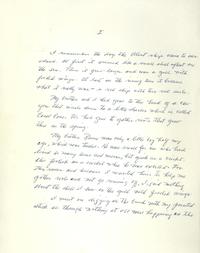 I
I remember the day the white ship came to our
island. At first it seemed like a small shell afloat on
the sea. Then it grew larger and was a gull with
folded wings. At last in the rising sun it became
what it really was - a red ship with two red sails.
My brother and I had gone to the head of a can-
yon that winds down to a little harbor which is called
Coral Cove. We had gone to gather roots that grow
there in the spring.
My brother Ramo was only a little boy half my
age, which was twelve. He was small for one who had
lived so many suns and moons, but quick as a cricket.
Also foolish as a cricket when he was excited. For
this reason and because I wanted him to help me
gather roots and not go running off, I said nothing
about the shell I saw or the gull with folded wings.
I went on digging in the brush with my pointed
stick as though nothing at all was happening on the